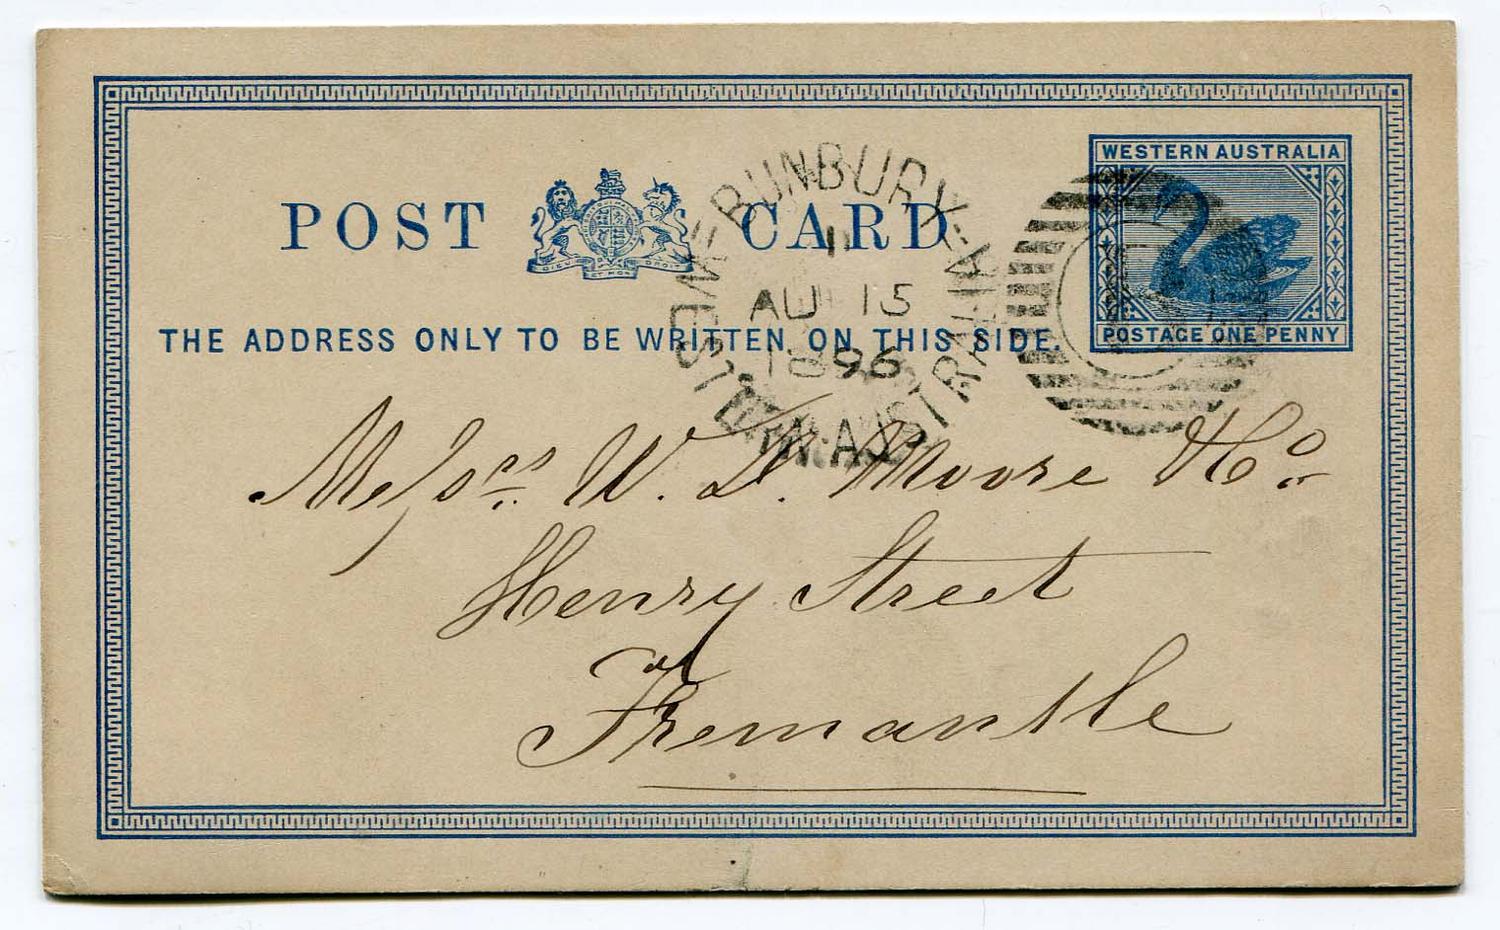 WESTERN AUSTRALIA
POST CARD
DIEU ET MON DROIT
POSTAGE ONE PENNY
THE ADDRESS ONLY TO BE WRITTEN ON THIS SIDE.
BUNBURY
11
AU 15
1896
WESTERN AUSTRALIA
Messrs. W. D. Moore & Co
Henry Street
Fremantle